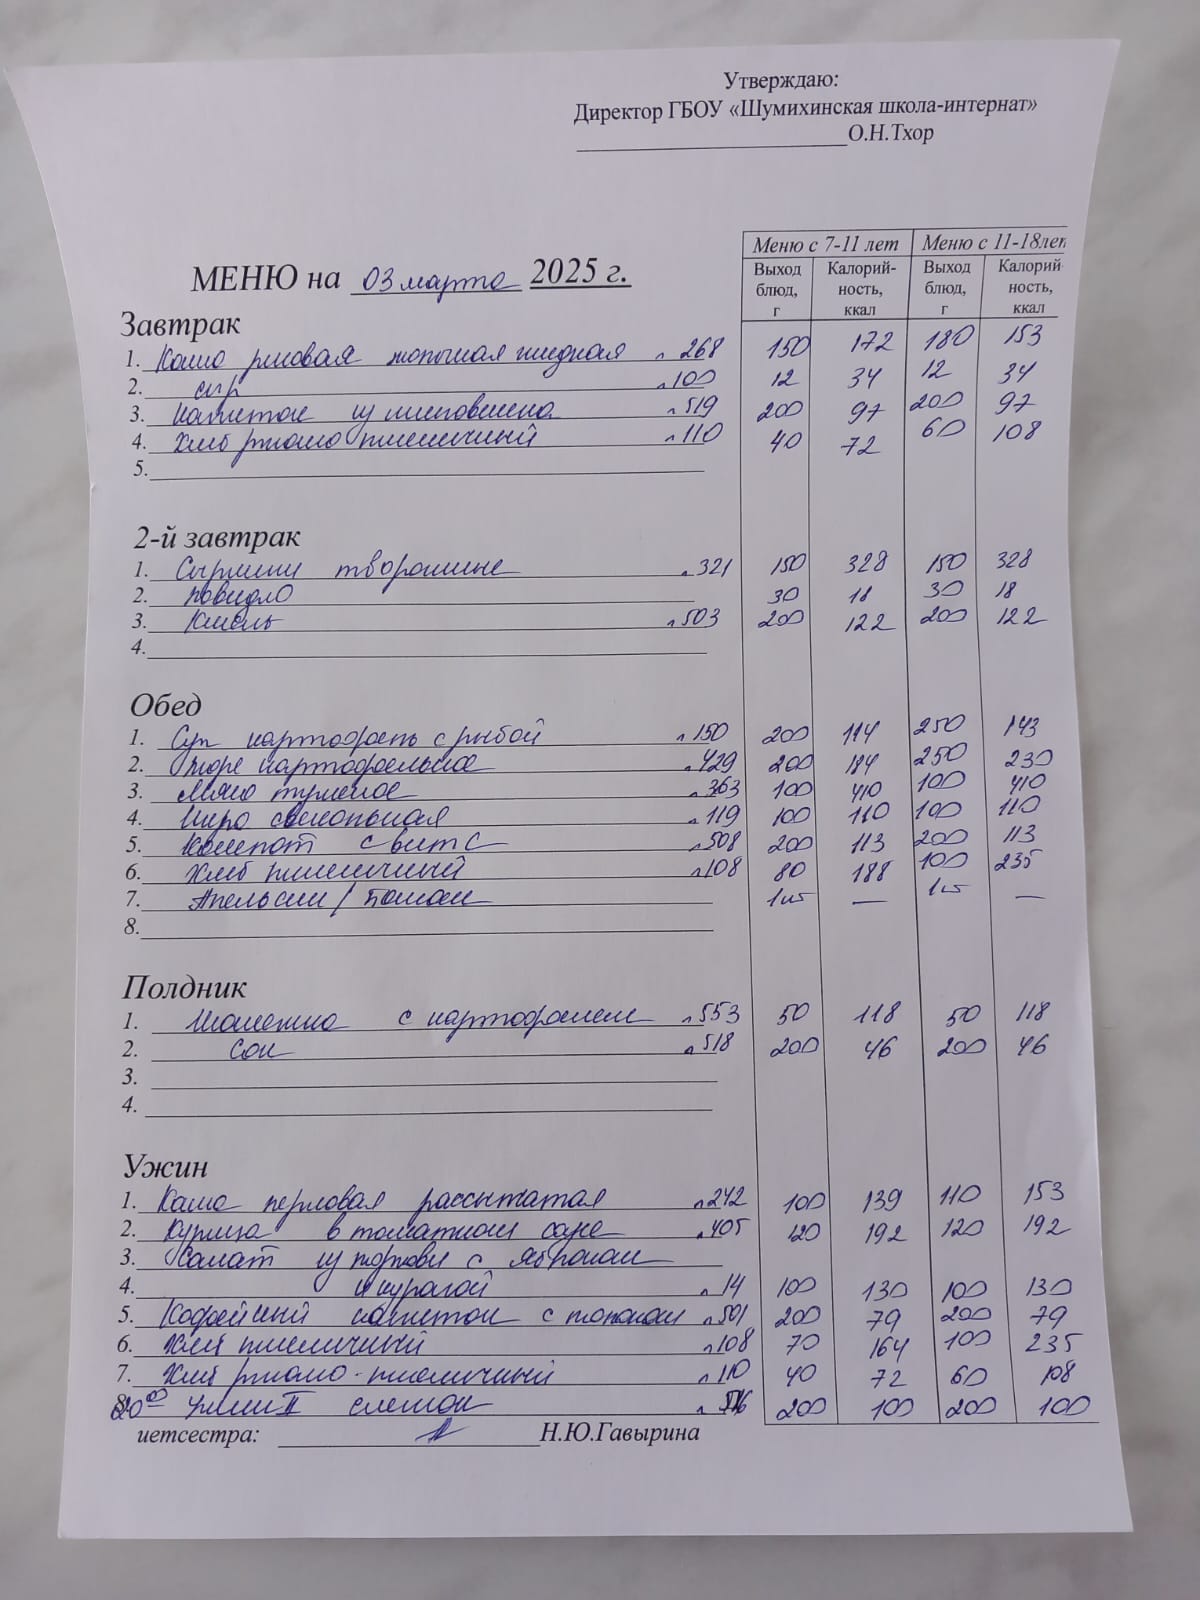 Утверждаю:
Директор ГБОУ «Шумихинская школа-интернат»
О.Н.Тхор
Меню с 7-11 лет Меню с 11-18лет
Выход блюд, г Калорий-ность, ккал Выход блюд, г Калорий ность, ккал
МЕНЮ на 03 марта 2025 г.
Завтрак
1. Каша рисовая молочная жидная л 268 150 172 180 153
2. сыр л 100 12 34 12 34
3. напиток из шиповника л 519 200 97 200 97
4. Хлеб ржано пшеничный л 110 40 72 60 108
5.
2-й завтрак
1. Сырники творожные л 321 150 328 150 328
2. повидло 30 18 30 18
3. Кисель л 503 200 122 200 122
4.
Обед
1. Суп картофель с рыбой л 150 200 114 250 143
2. пюре картофельное л 429 200 184 250 230
3. Мясо тушеное л 363 100 410 100 410
4. Икра свекольная л 119 100 110 100 110
5. Компот с вит С л 508 200 113 200 113
6. Хлеб пшеничный л 108 80 188 100 235
7. Апельсин / Банан 1шт — 1шт —
8.
Полдник
1. с картофелем л 553 50 118 50 118
2. Сок л 518 200 46 200 46
3.
4.
Ужин
1. Каша перловая рассыпчатая л 242 100 139 110 153
2. Курица в томатном соусе л 405 120 192 120 192
3. Салат из моркови с яблоками
4. и курагой л 14 100 130 100 130
5. Кофейный напиток с молоком л 501 200 79 200 79
6. Хлеб пшеничный л 108 70 164 100 235
7. Хлеб ржано-пшеничный л 110 40 72 60 108
20⁰⁰ Ужин II снежок л 516 200 100 200 100
иетсестра: Н.Ю.Гавырина